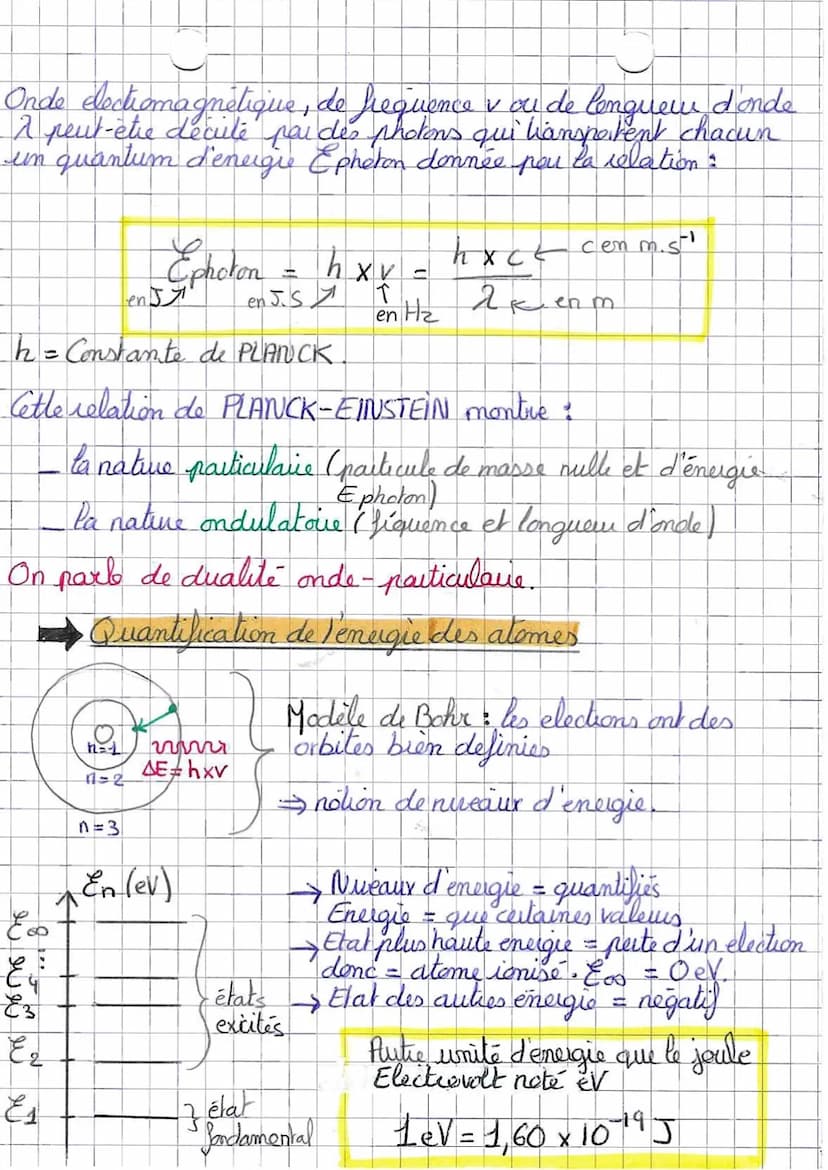 Onde électromagnétique, de fréquence ν ou de longueur d'onde
λ peut-être décrite par des photons qui transportent chacun
un quantum d'énergie Ephoton donnée par la relation :
Ephoton = h x ν = h x c / λ
← c en m.s⁻¹
en J
en J.S
en Hz
← en m
h = Constante de PLANCK.
Cette relation de PLANCK-EINSTEIN montre :
– la nature particulaire (particule de masse nulle et d'énergie
Ephoton)
– la nature ondulatoire (fréquence et longueur d'onde)
On parle de dualité onde-particulaire.
➡ Quantification de l'énergie des atomes
n=1
n=2
n=3
ΔE = h x ν
Modèle de Bohr : les electrons ont des
orbites bien definies
⇒ notion de niveaux d'energie.
En (eV)
E∞
⋮
E4
E3
E2
E1
états
excités
état
fondamental
→ Niveaux d'energie = quantifiés
Energie = que certaines valeurs
→ Etat plus haute energie = perte d'un electron
donc = atome ionisé. E∞ = 0 eV.
→ Etat des autres énergie = négatif
Autre unité d'énergie que le joule
Electrovolt noté eV
1 eV = 1,60 x 10⁻¹⁹ J